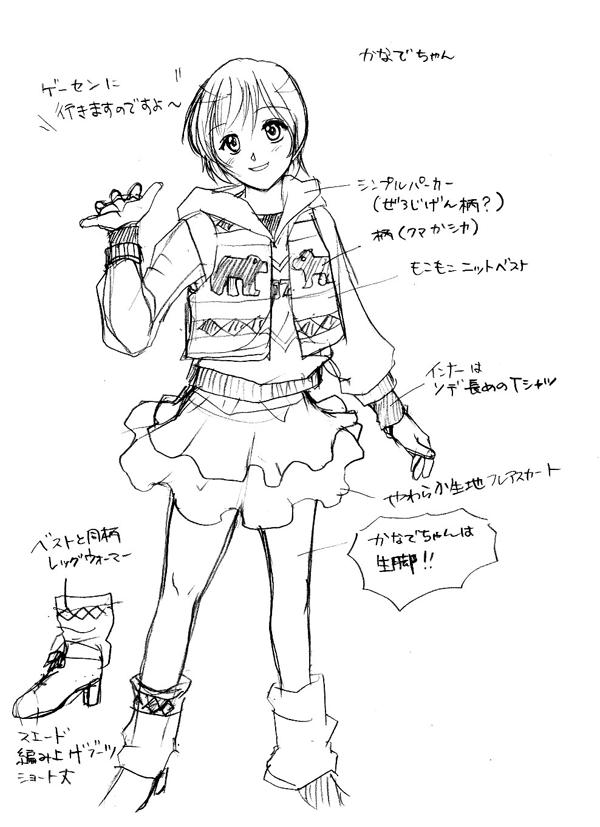 かなでちゃん
ゲーセンに
行きますのですよ〜
シンプルパーカー
(ぜろじげん柄?)
柄(クマかシカ)
もこもこニットベスト
インナーは
ソデ長めのTシャツ
やわらか生地フレアスカート
かなでちゃんは
生脚!!
ベストと同柄
レッグウォーマー
スエード
編み上げブーツ
ショート丈